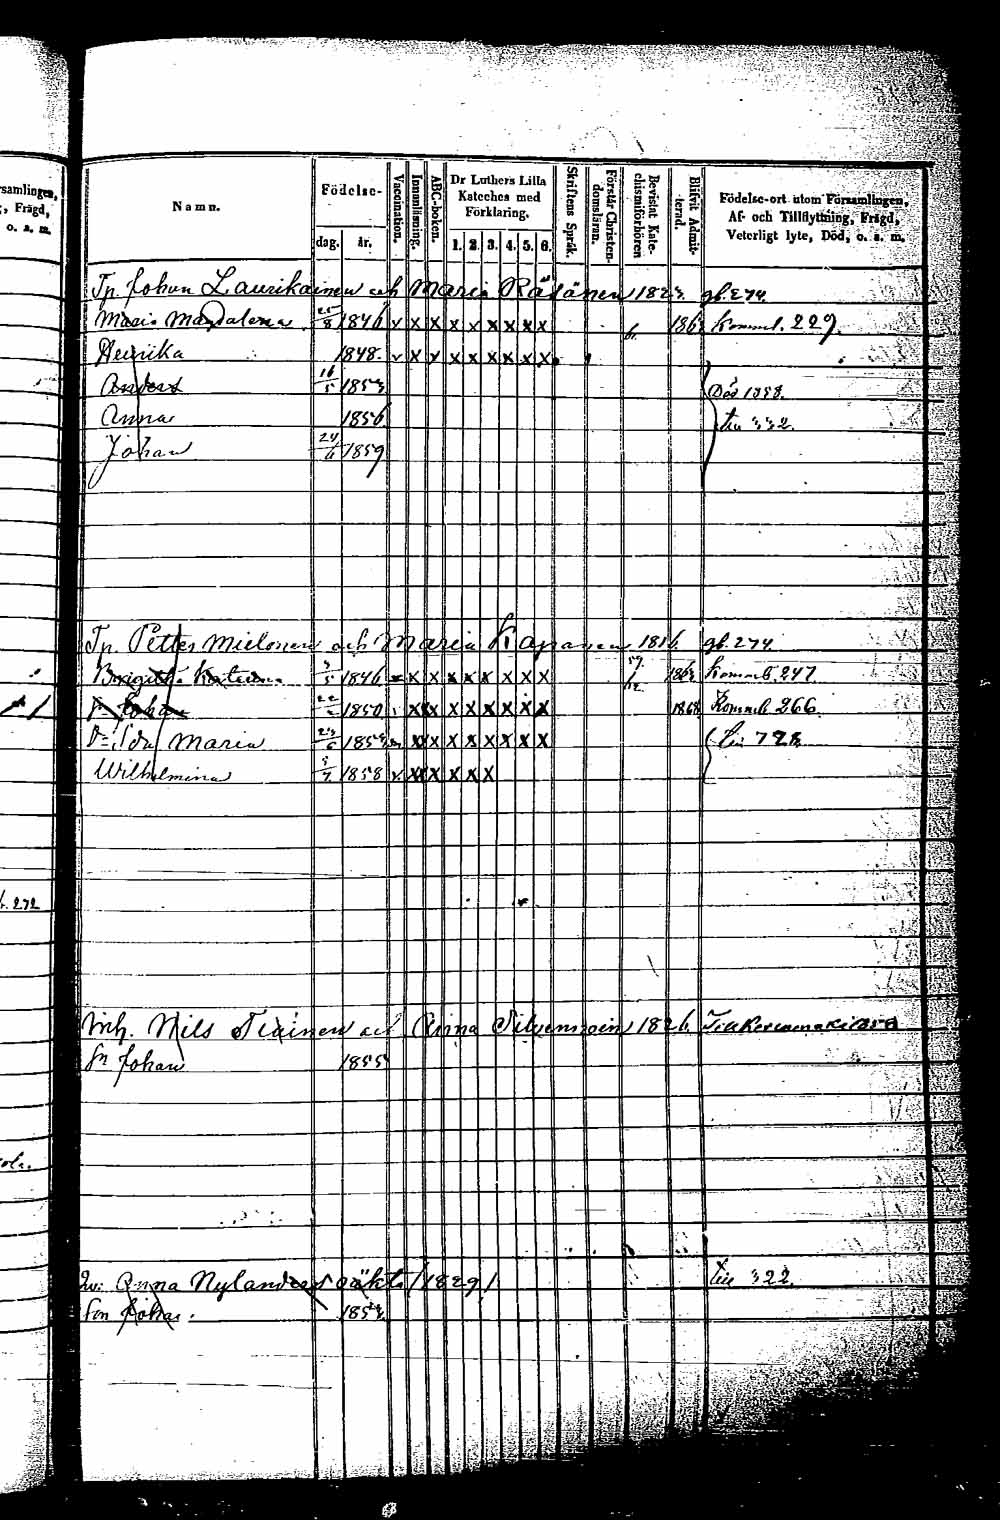 rsamlingen,
, Frägd,
o. s. m.
Namn.
Födelse-
dag. år.
Vaccination.
Innanläsning.
ABC-boken.
Dr Luthers Lilla
Kateches med
Förklaring.
1. 2. 3. 4. 5. 6.
Skriftens Språk.
Förstår Christen-
domsläran.
Bevistat Kate-
chismiförhören
Blifvit Admit-
terad.
Födelse-ort utom Församlingen,
Af- och Tillflyttning, Frägd,
Veterligt lyte, Död, o. s. m.
Tp. Johan Laurikainen och Maria Räsänen 1823. gb. 274.
Maria Magdalena 25/8 1846 v x x x x x x x x 186 Komml. 229
Henrika 1848. v x x x x x x x x
Anders 16/5 1853 Död 1858.
Anna 1856 till 332.
Johan 24/6 1859
Tp. Petter Mielonen och Maria Kapanen 1816. gb. 274.
Brigitta Katrina 3/5 1846 x x x x x x x x 186 Kommb. 247
Sn Johan 1850 x x x x x x x x 1868 Kommb 266.
Dr Ida Maria 23/6 1853 x x x x x x x x till 728
Wilhelmina 5/7 1858 v x x x x x
b. 272
Inh. Nils Tiainen och Anna Silvennoin 1826. Till
Sn Johan 1855
ola.
Qv: Anna Nylanders oäkta (1829) till 322.
Son Johan. 1853.